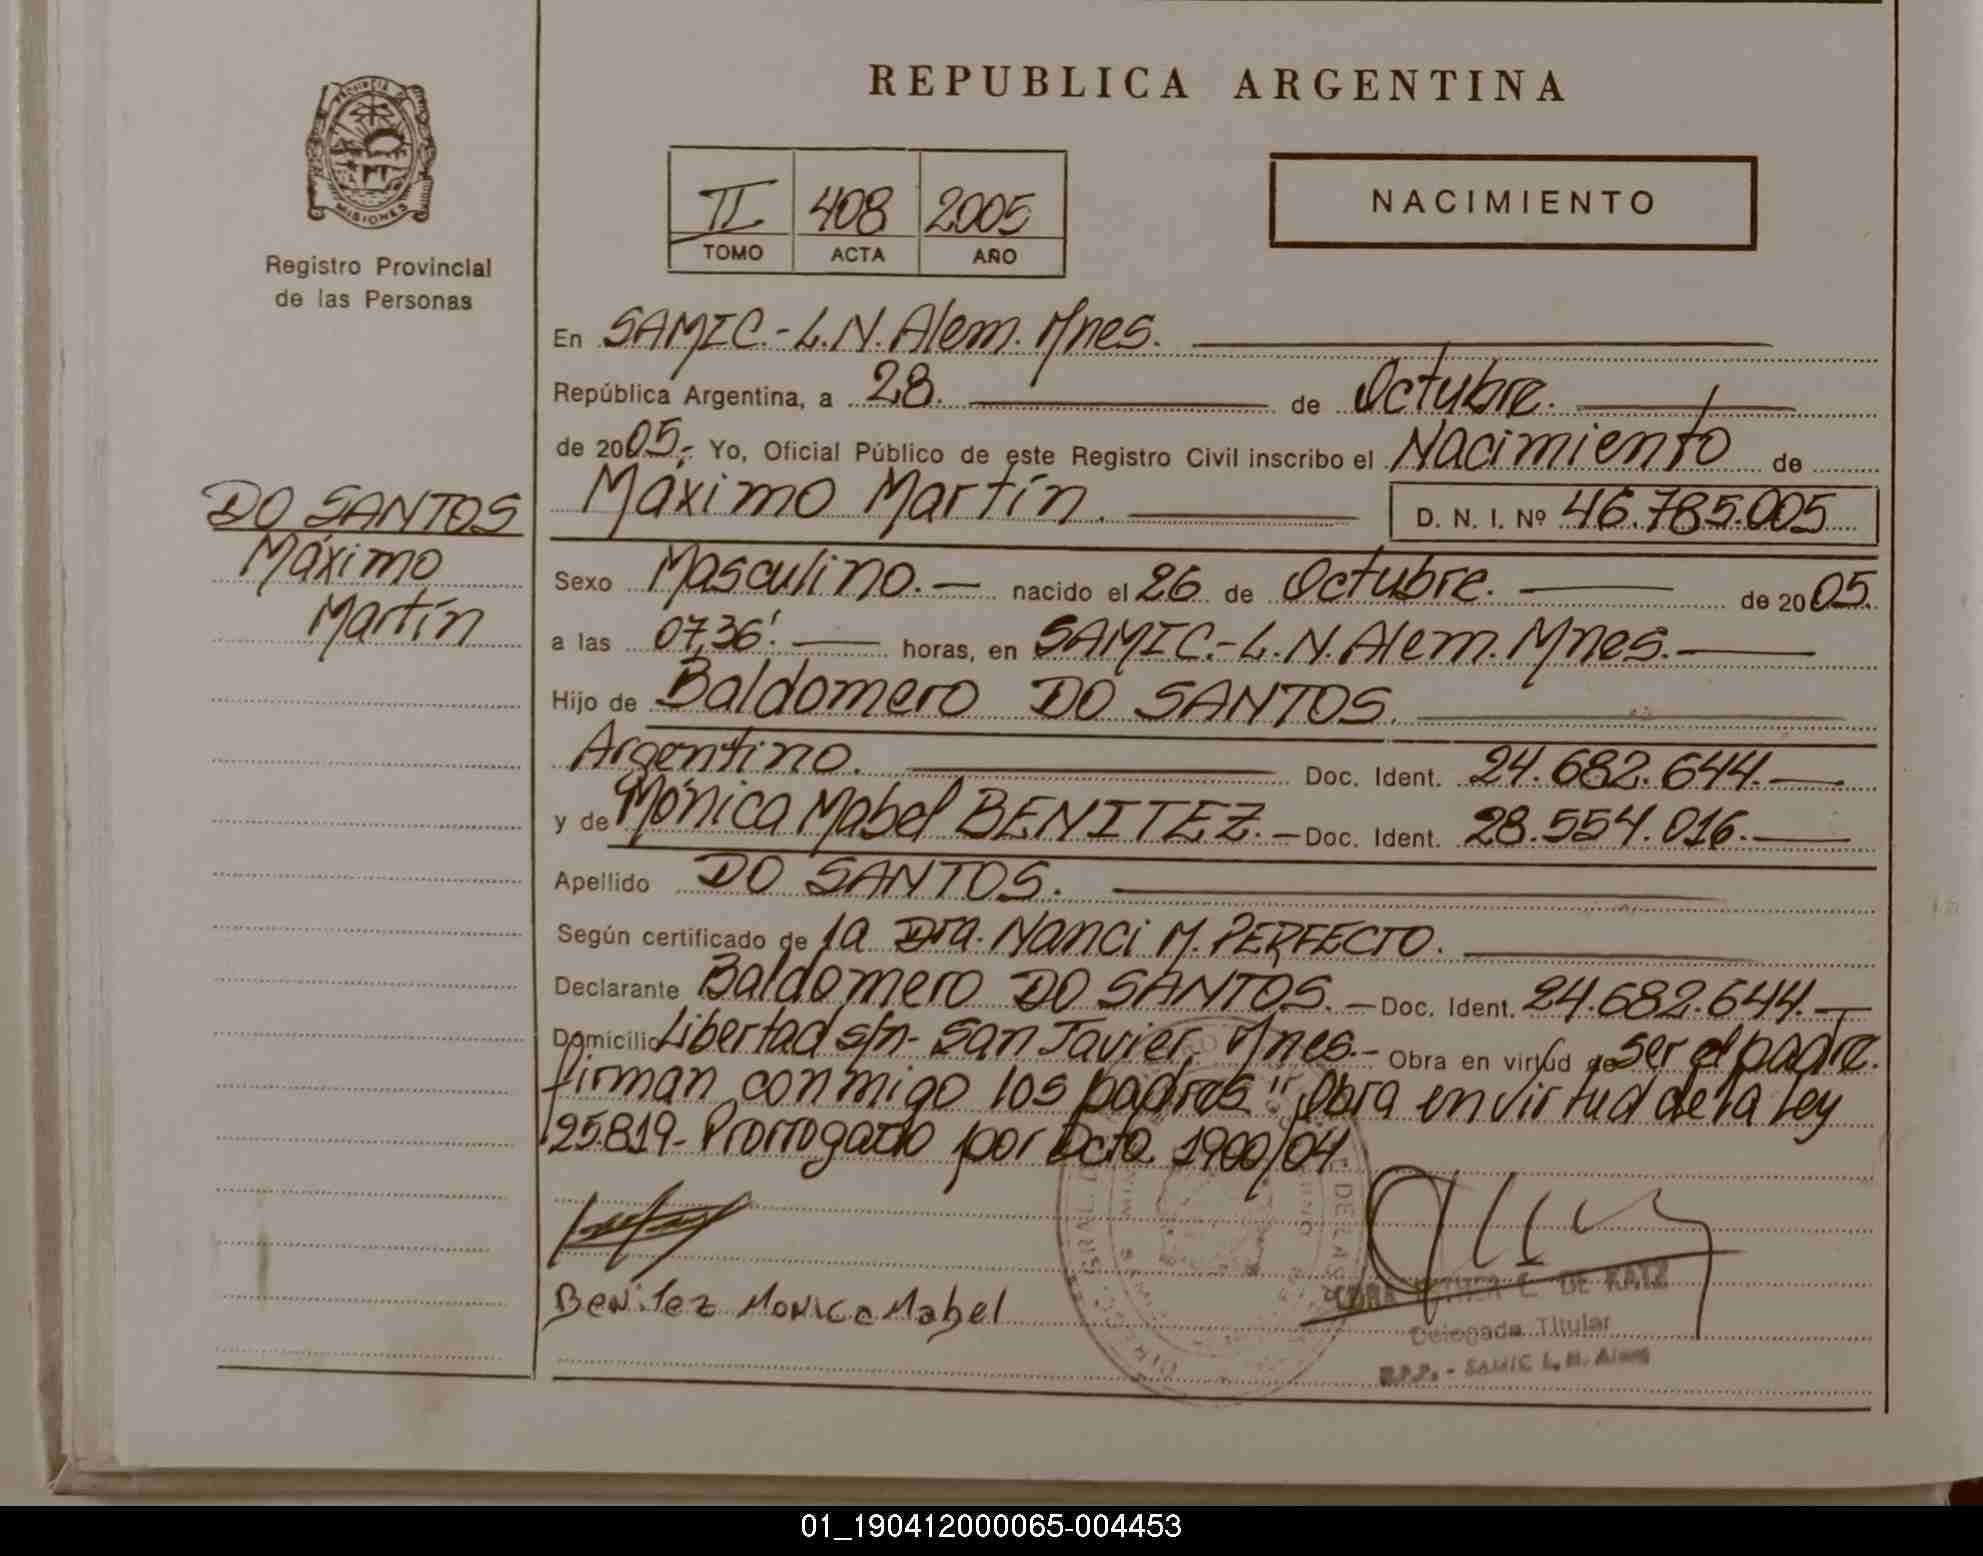 REPUBLICA ARGENTINA
PROVINCIA DE MISIONES
Registro Provincial
de las Personas
II 408 2005
TOMO ACTA AÑO
NACIMIENTO
En SAMIC.- L.N. Alem. Mnes.
República Argentina, a 28. de Octubre.
de 2005.- Yo, Oficial Público de este Registro Civil inscribo el Nacimiento de
DO SANTOS
Máximo
Martín
Máximo Martín. D. N. I. Nº 46.785.005
Sexo Masculino.- nacido el 26 de Octubre. de 2005.
a las 07,36'. horas, en SAMIC.- L.N. Alem. Mnes.
Hijo de Baldomero DO SANTOS.
Argentino. Doc. Ident. 24.682.644.
y de Mónica Mabel BENITEZ.- Doc. Ident. 28.554.016.
Apellido DO SANTOS.
Según certificado de la Dra. Nanci M. PERFECTO.
Declarante Baldomero DO SANTOS.- Doc. Ident. 24.682.644.
Domicilio Libertad s/n- San Javier, Mnes.- Obra en virtud de ser el padre.
firman conmigo los padres". Obra en virtud de la ley
25.819- Prorrogado por Dcto 1900/04
Benitez Monica Mabel
C. DE KATZ
Delegada Titular
R.P.P. - SAMIC L. N. Alem
01_190412000065-004453